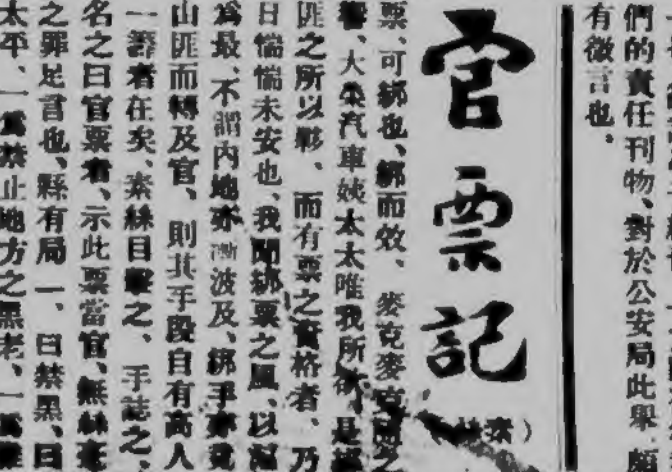 們的責任刊物、對於公安局此舉、頗
有微言也、
官票記
素
票、可綁也、綁而效、麥克麥克
響、大桑汽車姨太太唯我所欲、是
匪之所以夥、而有票之資格者、乃
日惴惴未安也、我聞綁票之風、以
爲最、不謂內地亦漸波及、綁手
山匪而轉及官、則其手段自有高人
一籌者在矣、素絲目擊之、手誌之、
名之曰官票者、示此票當官、無絲毫
之罪足言也、縣有局一、曰禁黑、曰
太平、一爲禁止地方之黑老、一爲